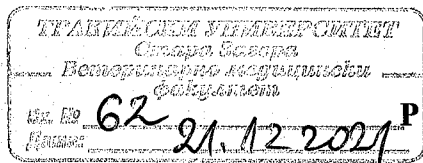 ТРАКИЙСКИ УНИВЕРСИТЕТ
Стара Загора
Ветеринарно медицински
факултет
Вх. № 62
Дата: 21.12.2021
Р